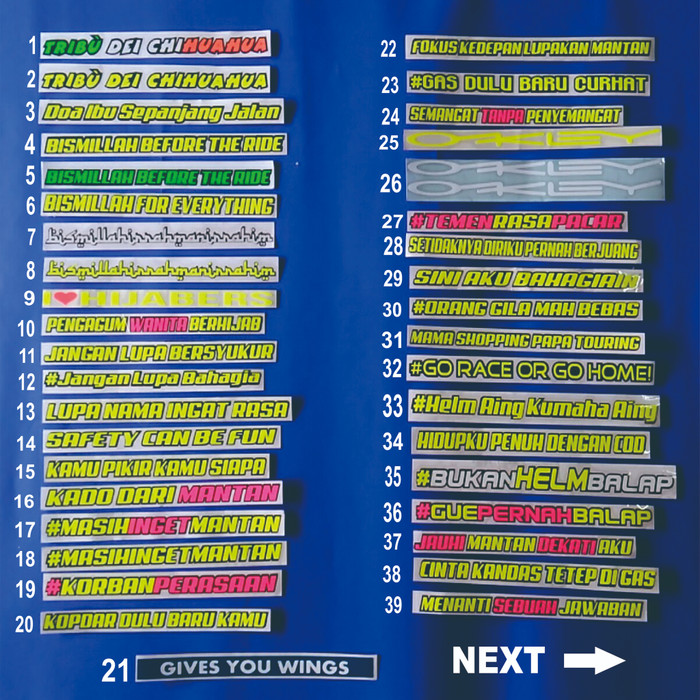 1 TRIBÙ DEI CHIHUAHUA
2 TRIBÙ DEI CHIHUAHUA
3 Doa Ibu Sepanjang Jalan
4 BISMILLAH BEFORE THE RIDE
5 BISMILLAH BEFORE THE RIDE
6 BISMILLAH FOR EVERYTHING
7 bismillahirrahmanirrahim
8 bismillahirrahmanirrahim
9 I ❤ HIJABERS
10 PENGAGUM WANITA BERHIJAB
11 JANGAN LUPA BERSYUKUR
12 #Jangan Lupa Bahagia
13 LUPA NAMA INGAT RASA
14 SAFETY CAN BE FUN
15 KAMU PIKIR KAMU SIAPA
16 KADO DARI MANTAN
17 #MASIHINGETMANTAN
18 #MASIHINGETMANTAN
19 #KORBANPERASAAN
20 KOPDAR DULU BARU KAMU
21 GIVES YOU WINGS
22 FOKUS KEDEPAN LUPAKAN MANTAN
23 #GAS DULU BARU CURHAT
24 SEMANGAT TANPA PENYEMANGAT
25 OAKLEY
26 OAKLEY
OAKLEY
27 #TEMENRASAPACAR
28 SETIDAKNYA DIRIKU PERNAH BERJUANG
29 SINI AKU BAHAGIAIN
30 #ORANG GILA MAH BEBAS
31 MAMA SHOPPING PAPA TOURING
32 #GO RACE OR GO HOME!
33 #Helm Aing Kumaha Aing
34 HIDUPKU PENUH DENGAN COD
35 #BUKANHELMBALAP
36 #GUEPERNAHBALAP
37 JAUHI MANTAN DEKATI AKU
38 CINTA KANDAS TETEP DI GAS
39 MENANTI SEBUAH JAWABAN
NEXT